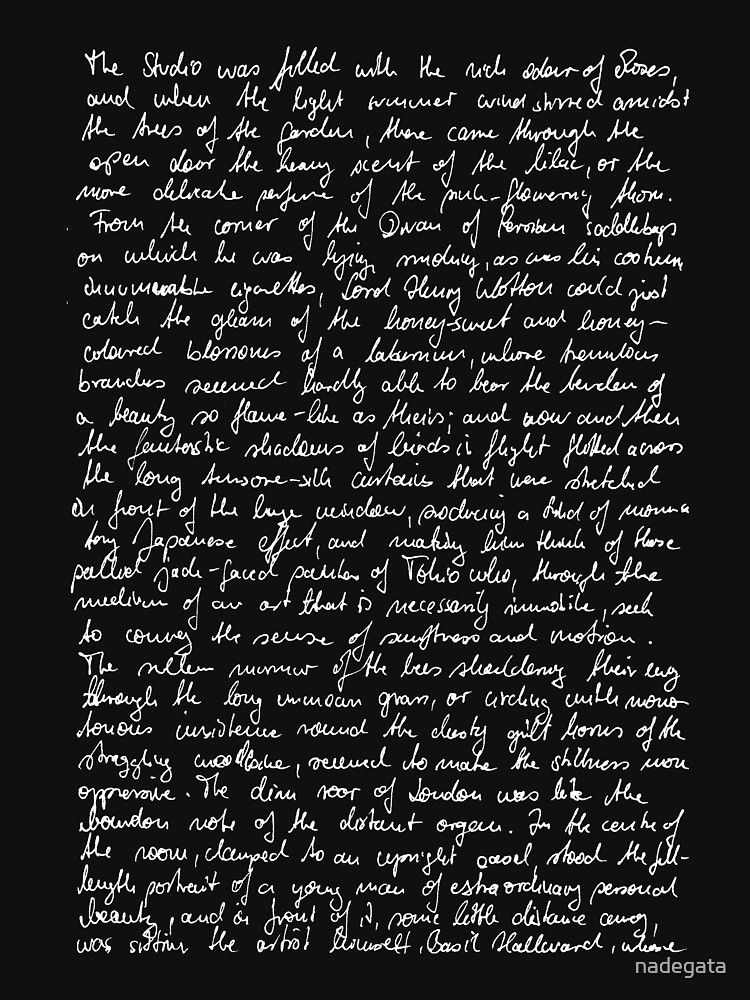 The Studio was filled with the rich odour of Roses,
and when the light summer wind stirred amidst
the trees of the garden, there came through the
open door the heavy scent of the lilac, or the
more delicate perfume of the pink-flowering thorn.
From the corner of the Divan of Persian saddlebags
on which he was lying, smoking, as was his custom,
innumerable cigarettes, Lord Henry Wotton could just
catch the gleam of the honey-sweet and honey-
coloured blossoms of a laburnum, whose tremulous
branches seemed hardly able to bear the burden of
a beauty so flame-like as theirs; and now and then
the fantastic shadows of birds in flight flitted across
the long tussore-silk curtains that were stretched
in front of the huge window, producing a kind of momen
tary Japanese effect, and making him think of those
pallid jade-faced painters of Tokio who, through the
medium of an art that is necessarily immobile, seek
to convey the sense of swiftness and motion.
The sullen murmur of the bees shouldering their way
through the long unmown grass, or circling with mono
tonous insistence round the dusty gilt horns of the
straggling woodbine, seemed to make the stillness more
oppressive. The dim roar of London was like the
bourdon note of the distant organ. In the centre of
the room, clamped to an upright easel, stood the full-
length portrait of a young man of extraordinary personal
beauty, and in front of it, some little distance away,
was sitting the artist himself, Basil Hallward, whose
nadegata